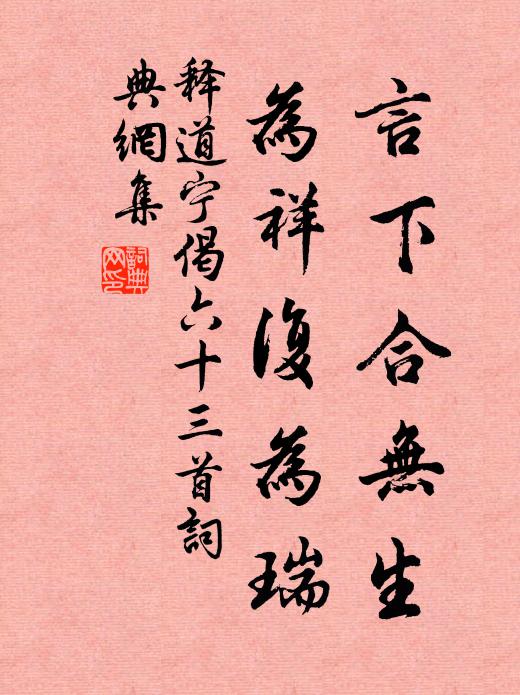 言下合無生
為祥復為瑞
释道宁偈六十三首詞
典網集
詞典
网印